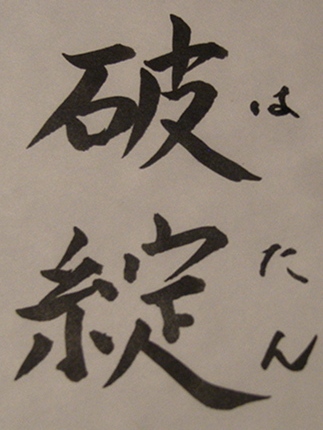 破綻
はたん